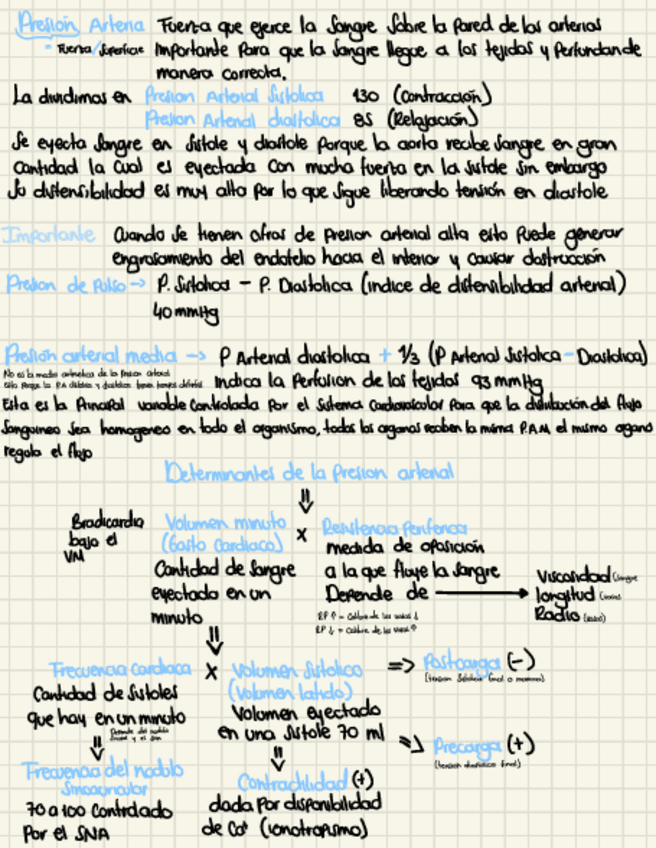 Presion Arteria Fuerza que ejerce la Sangre Sobre la Pared de las arterias
= Fuerza/Superficie Importante Para que la Sangre llegue a los tejidos y Perfundan de
manera correcta.
La dividimos en Presion Arterial Sistolica 130 (Contracción)
Presion Arterial diastolica 85 (Relajación)
Se eyecta Sangre en Sistole y diastole Porque la aorta recibe Sangre en gran
Cantidad la Cual es eyectada Con mucha fuerza en la Sistole Sin embargo
Su distensibilidad es muy alta Por lo que Sigue liberando tensión en diastole
Importante Cuando Se tienen cifras de Presion arterial alta esto Puede generar
engrosamiento del endotelio hacia el interior y Causar obstrucción
Presion de Pulso → P. Sistolica - P. Diastolica (indice de distensibilidad arterial)
40 mmHg
Presión arterial media → P Arterial diastolica + 1/3 (P Arterial Sistolica - Diastolica)
No es la media aritmetica de la Presion arterial
Indica la Perfusion de los tejidos 93 mmHg
Esta es la Principal variable Controlada Por el Sistema Cardiovascular Para que la distribución del flujo
Sanguineo Sea homogeneo en todo el organismo, todos los organos reciben la misma P.A.M, el mismo organo
regula el flujo
Determinantes de la Presion arterial
⇓
Bradicardia
bajo el
VM
Volumen minuto
(Gasto Cardiaco)
Cantidad de Sangre
eyectado en un
minuto
x
Resistencia Periferica
medida de oposición
a la que fluye la Sangre
Depende de →
RP ↑ = Calibre de los vasos ↓
RP ↓ = Calibre de los vasos ↑
Viscosidad (Sangre
longitud (vasos)
Radio (vasos)
⇓
Frecuencia Cardiaca
Cantidad de Sistoles
que hay en un minuto
⇓
Frecuencia del nodulo
Sinoauricular
70 a 100 Controlado
Por el SNA
x
Volumen Sistolico
(Volumen latido)
Volumen eyectado
en una Sistole 70 ml
⇓
Contractilidad (+)
dada Por disponibilidad
de Ca+ (ionotropismo)
⇒ Postcarga (-)
⇒ Precarga (+)
(tension diastolica final)